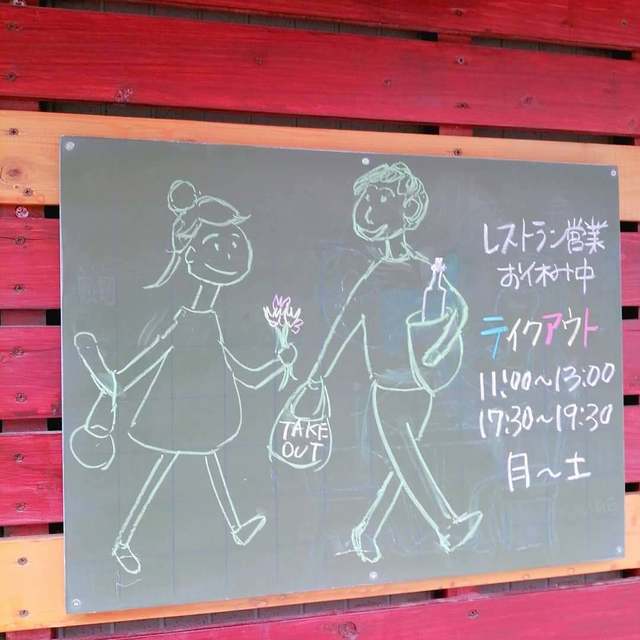 レストラン営業
お休み中
テイクアウト
11:00〜13:00
17:30〜19:30
月〜土
TAKE
OUT